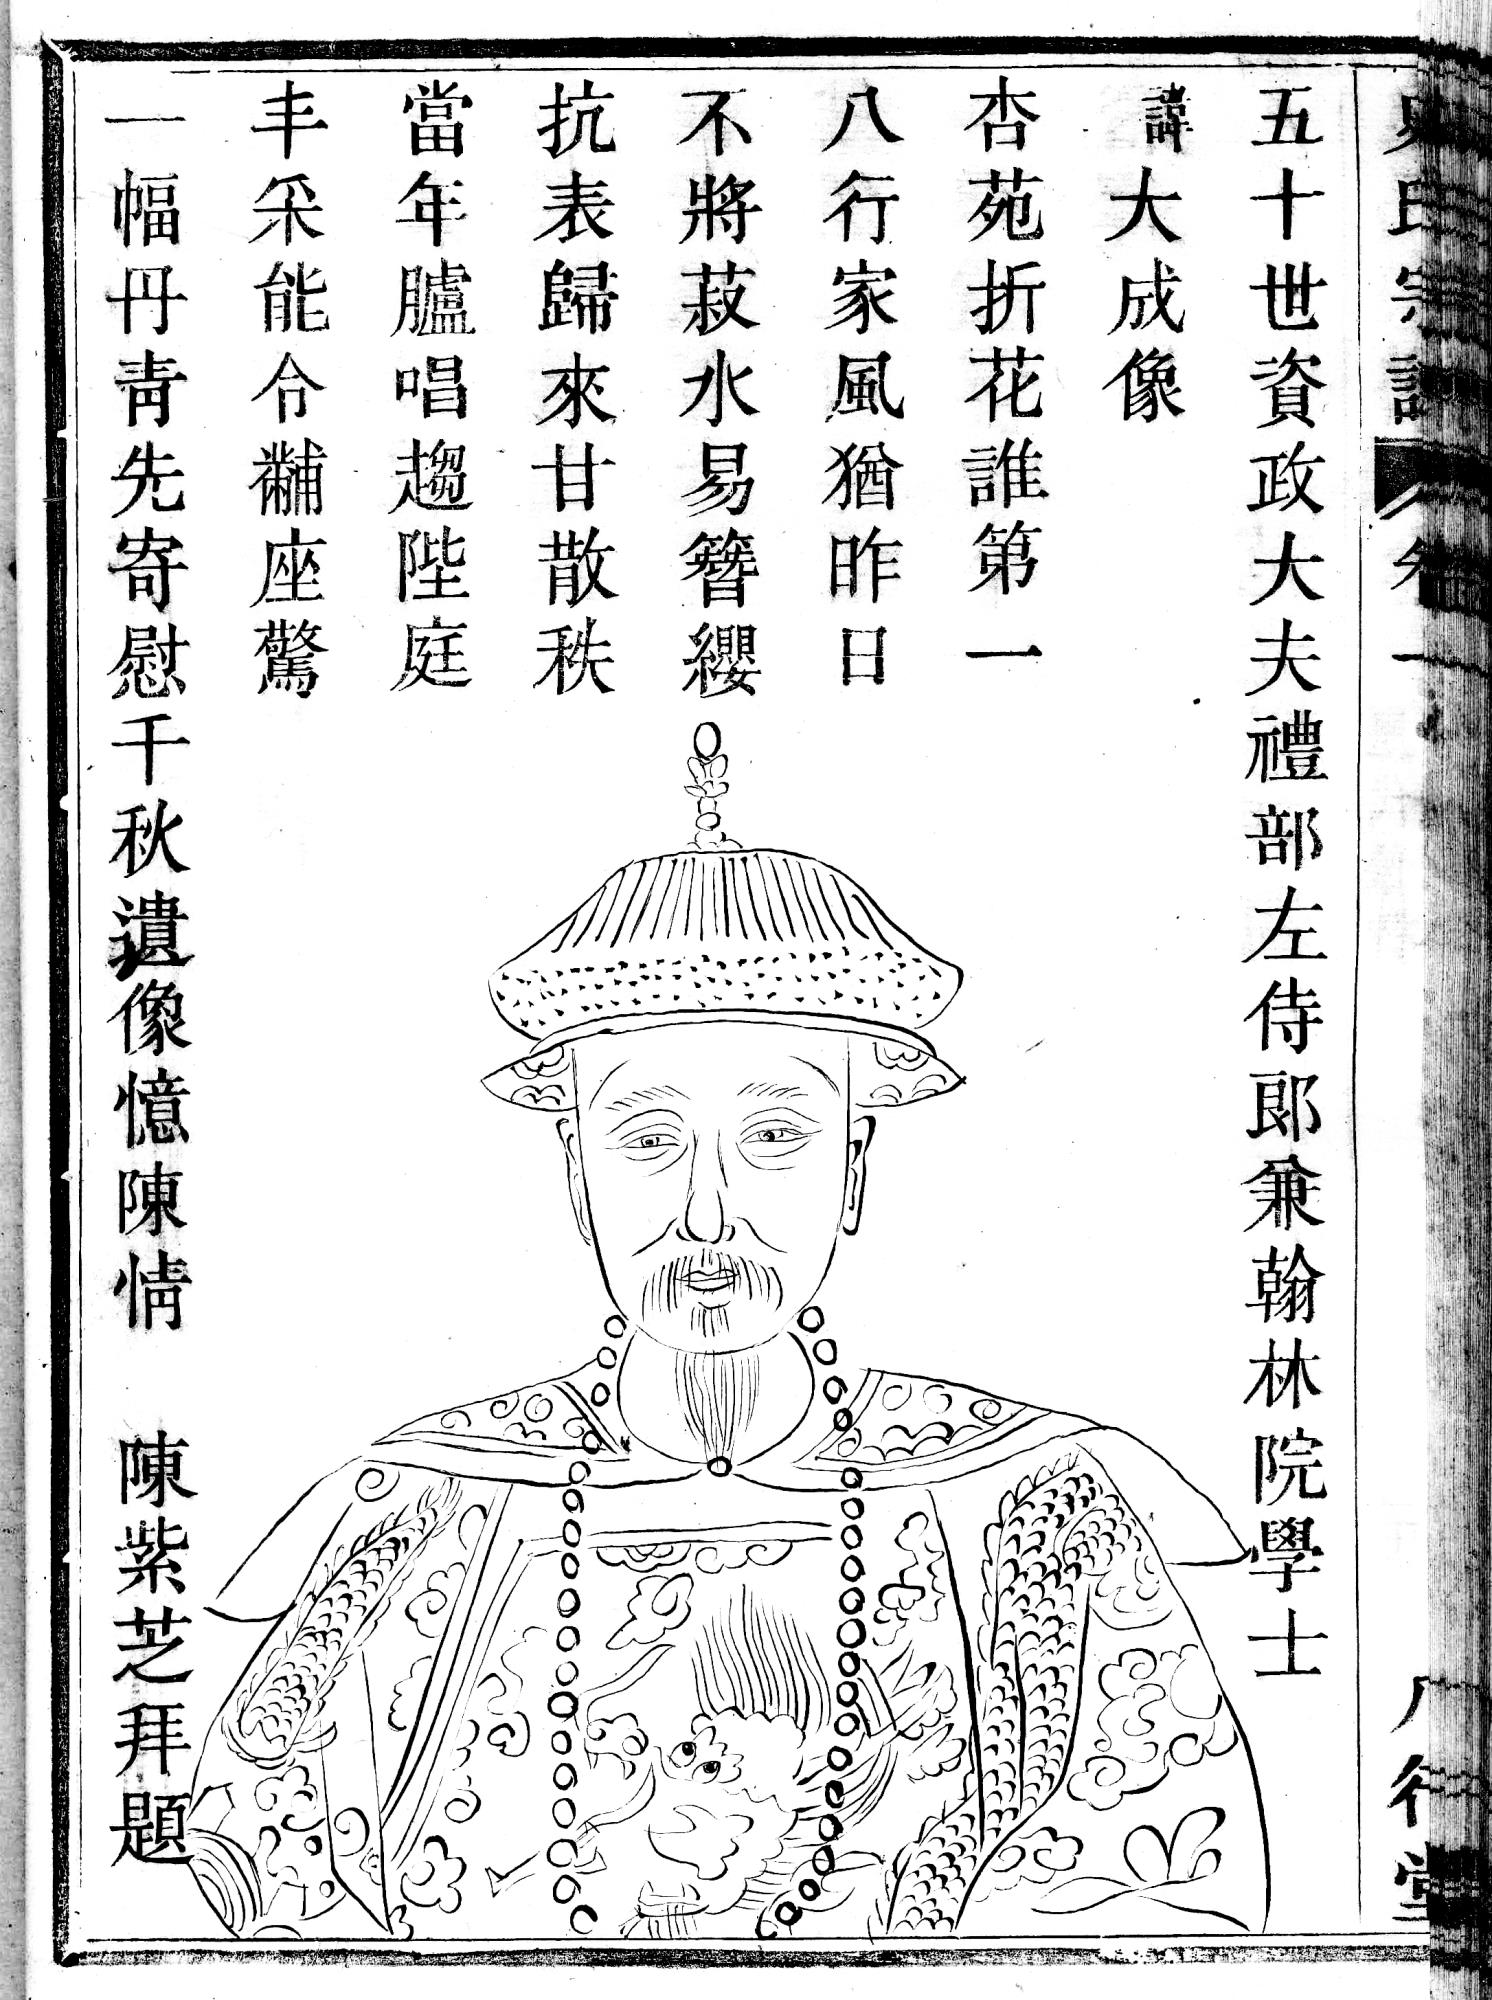 史氏宗譜 卷一 八行堂
五十世資政大夫禮部左侍郎兼翰林院學士
諱大成像
杏苑折花誰第一
八行家風猶昨日
不將菽水易簪纓
抗表歸來甘散秩
當年臚唱趨陛庭
丰采能令黼座驚
一幅丹青先寄慰千秋遺像憶陳情 陳紫芝拜題